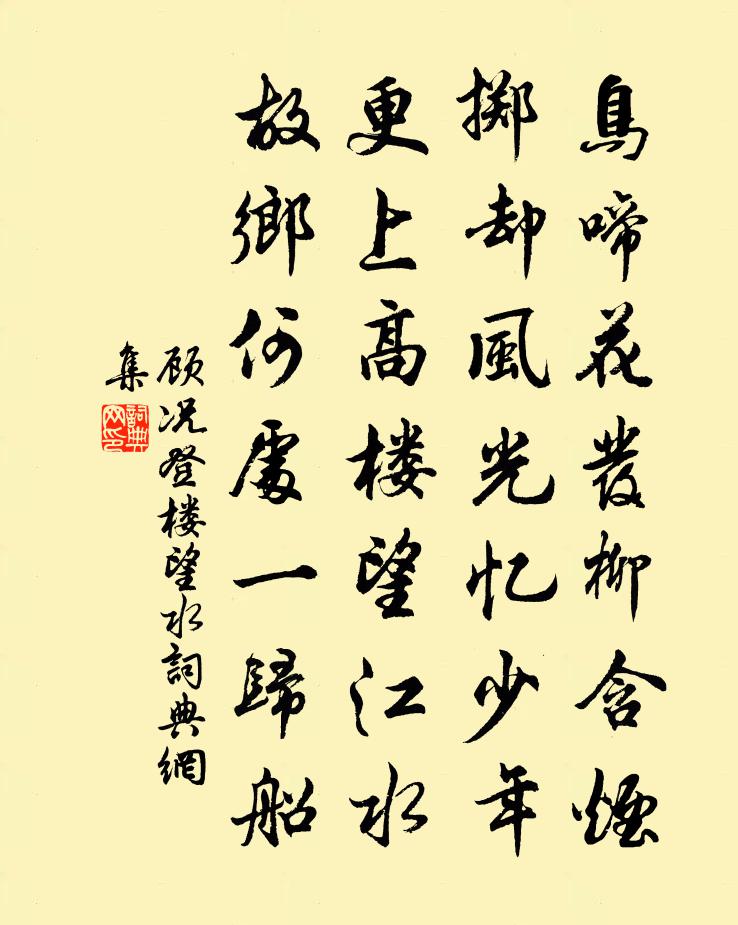 鳥啼花發柳含煙
擲却風光忆少年
更上高楼望江水
故鄉何處一歸船
顾况登楼望水詞典網
集
詞典网印